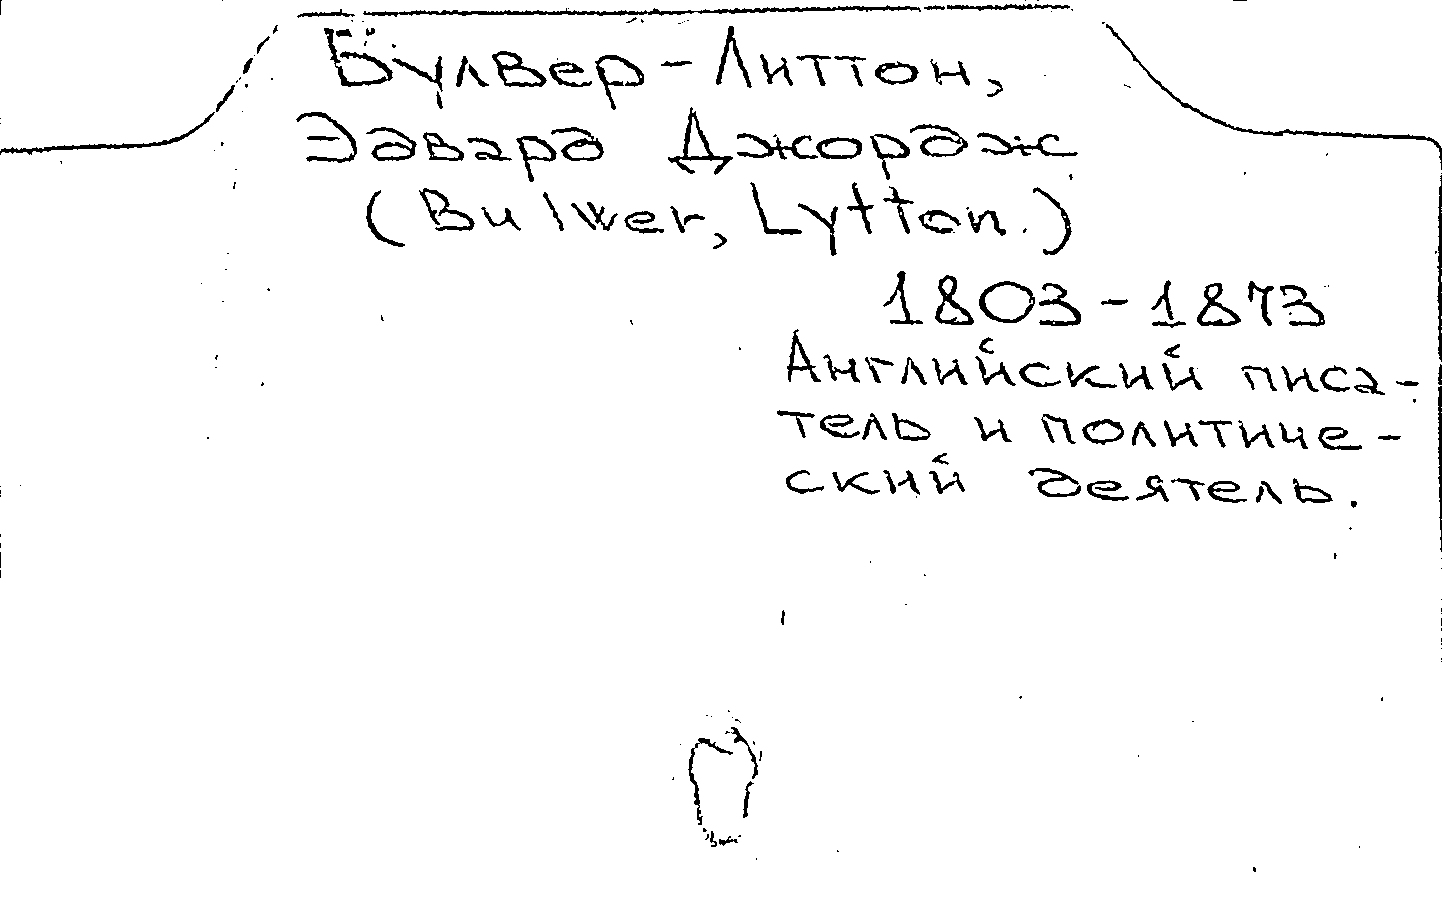 Булвер-Литтон,
Эдвард Джордж
(Bulwer, Lytton.)
1803-1873
Английский писа-
тель и политиче-
ский деятель.